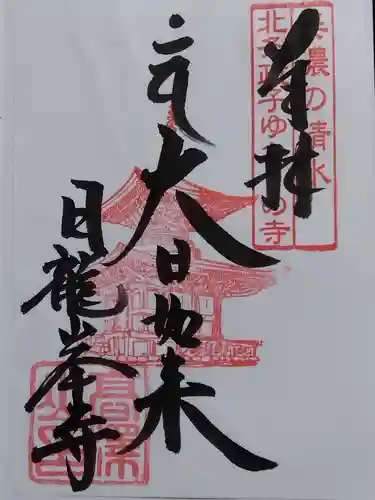 奉拝
美濃の清水
北条政子ゆかりの寺
大日如来
日龍峯寺
高澤